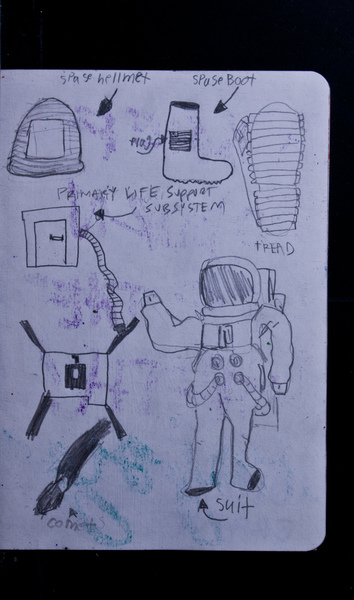 spase hellmet
spase Boot
PRIMARY LIFE support
SUBSYSTEM
tREAD
suit